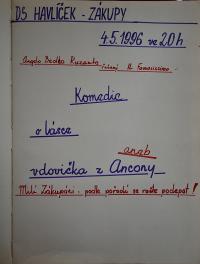 DS HAVLÍČEK - ZÁKUPY
4.5.1996 ve 20h
Angelo Beolko Ruzante
Komedie
o lásce
aneb
vdovička z Ancony
Milí Zákupáci, podle pořadí se račte podepsat!